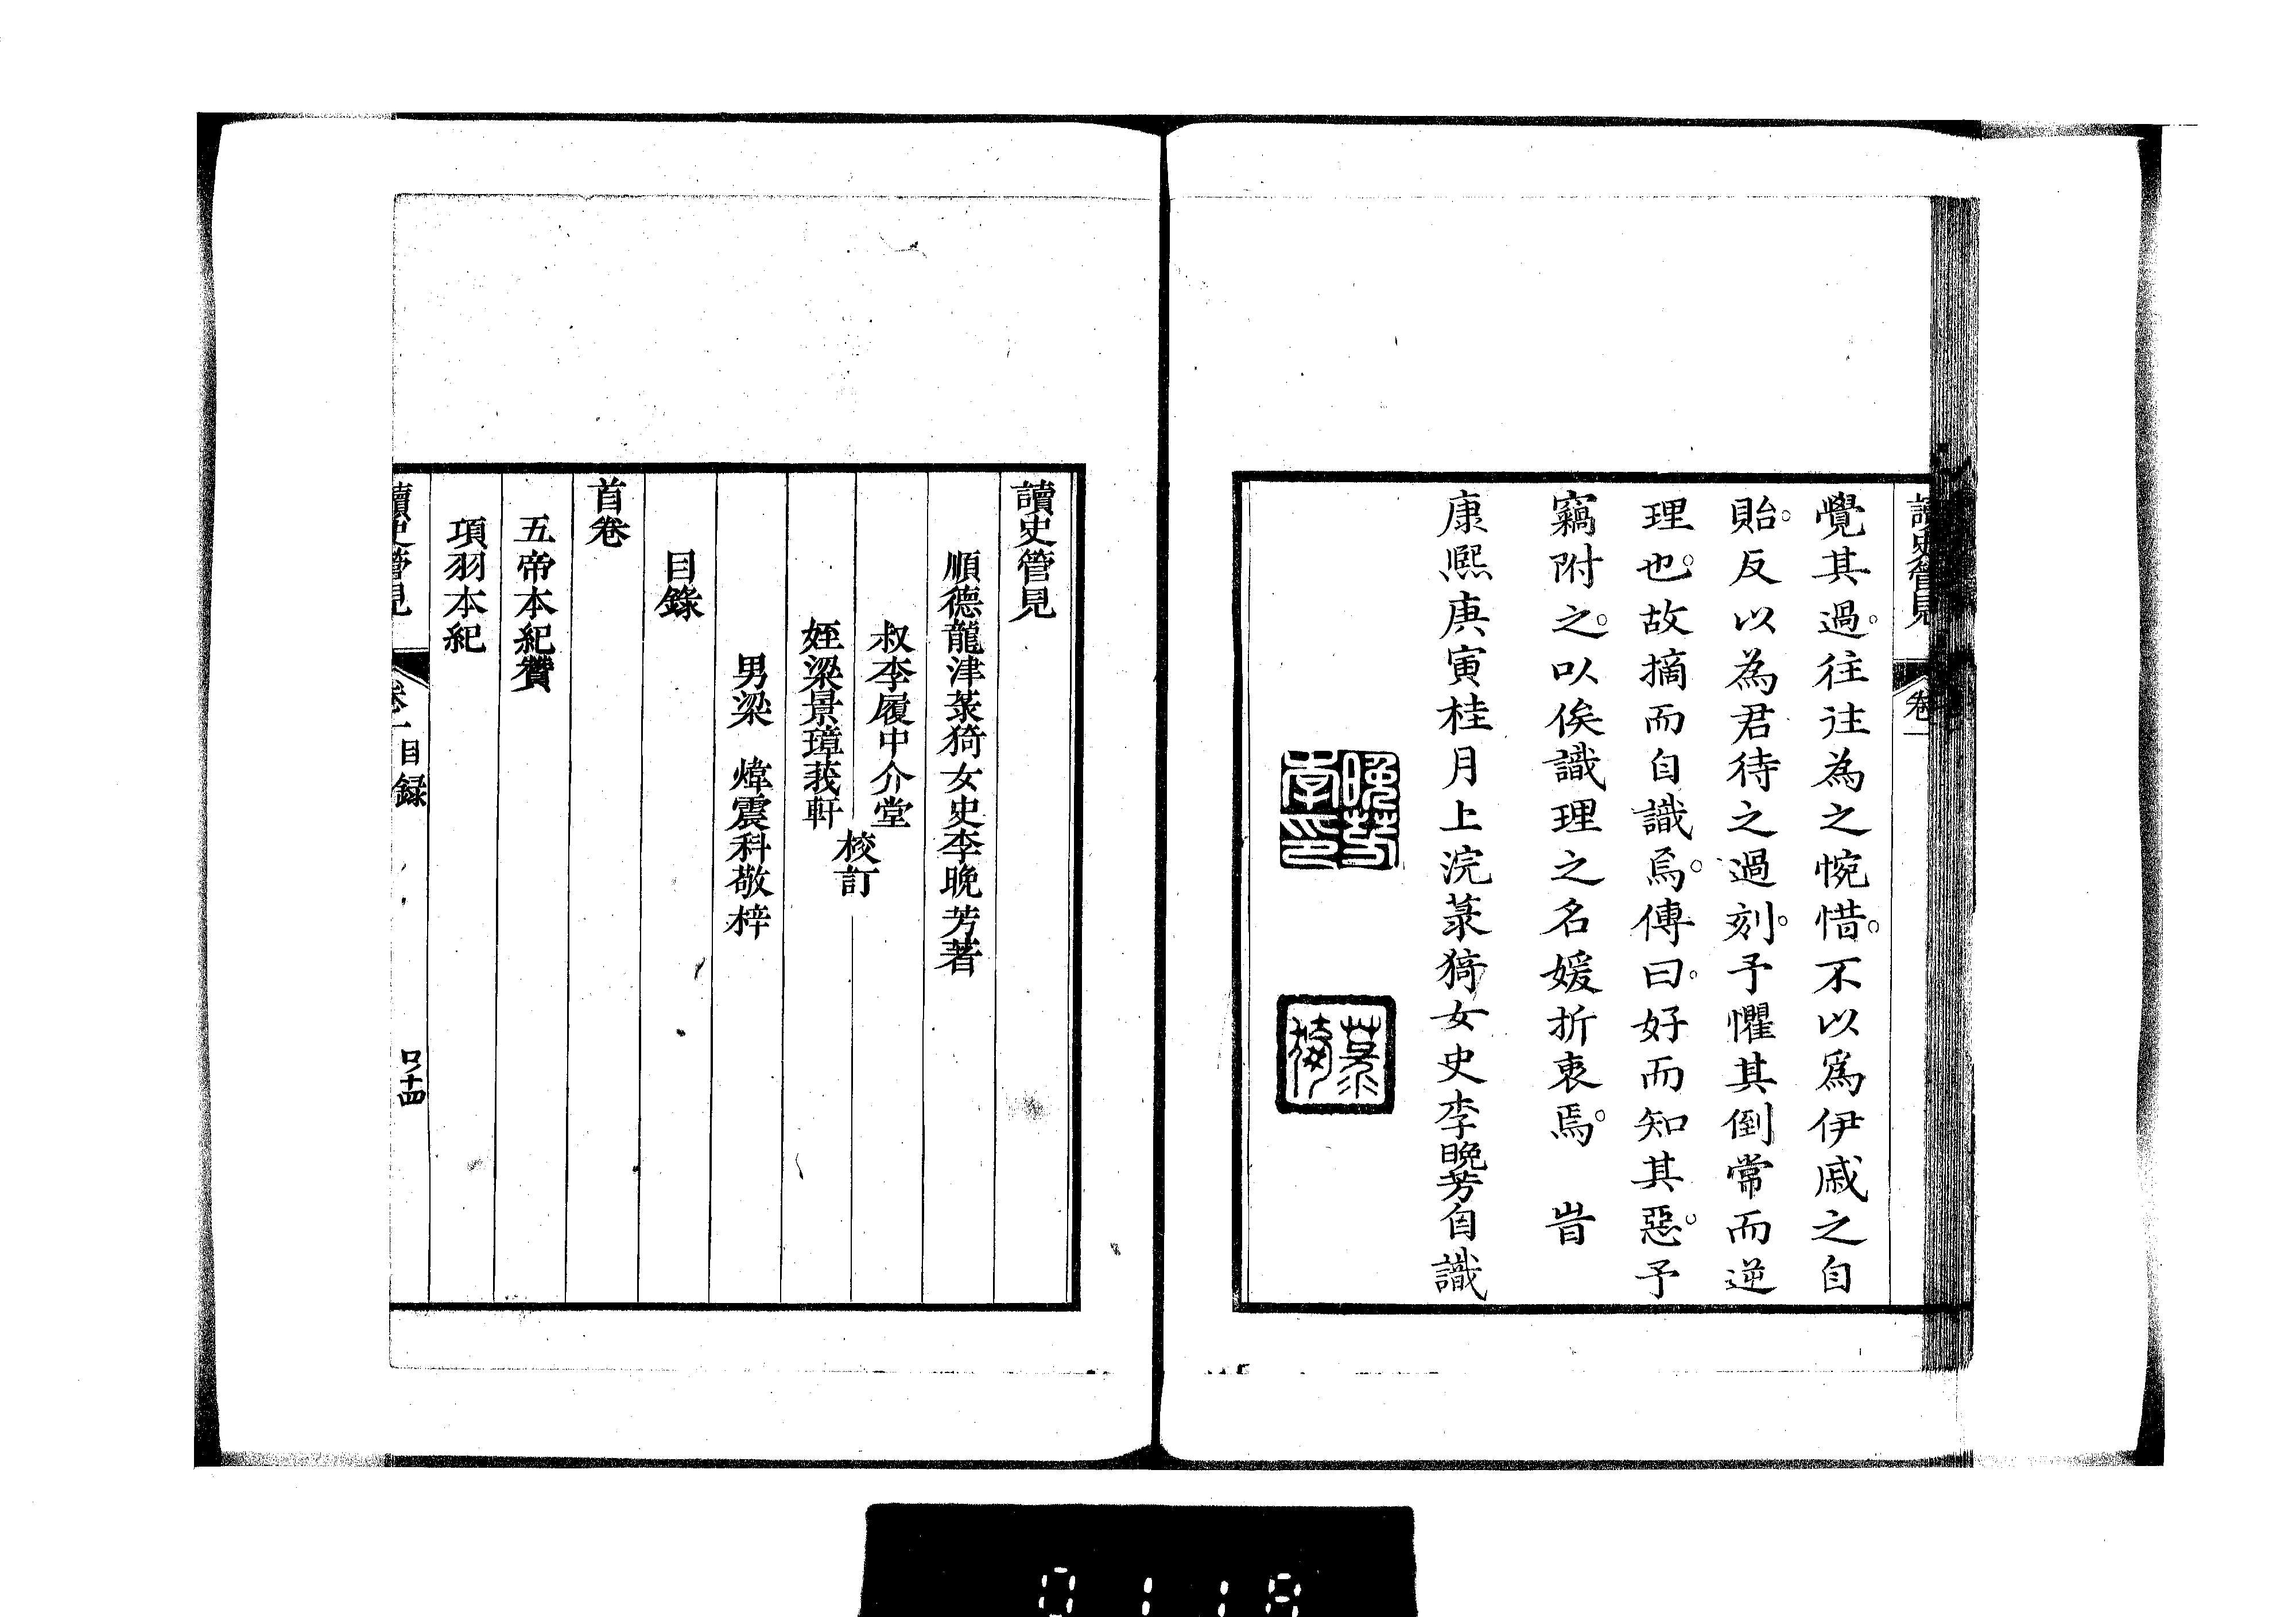 讀史管見
卷一
覺其過。往往為之惋惜。不以爲伊戚之自
貽。反以為君待之過刻。予懼其倒常而逆
理也。故摘而自識焉。傳曰。好而知其惡。予
竊附之。以俟識理之名媛折衷焉。 旹
康熙庚寅桂月上浣菉猗女史李晚芳自識
晚芳
李印
菉
猗
讀史管見
順德龍津菉猗女史李晚芳著
叔李履中介堂
姪梁景璋莪軒
校訂
男梁 煒震科敬梓
目錄
首卷
五帝本紀贊
項羽本紀
讀史管見
卷一
目録
口十四
0119